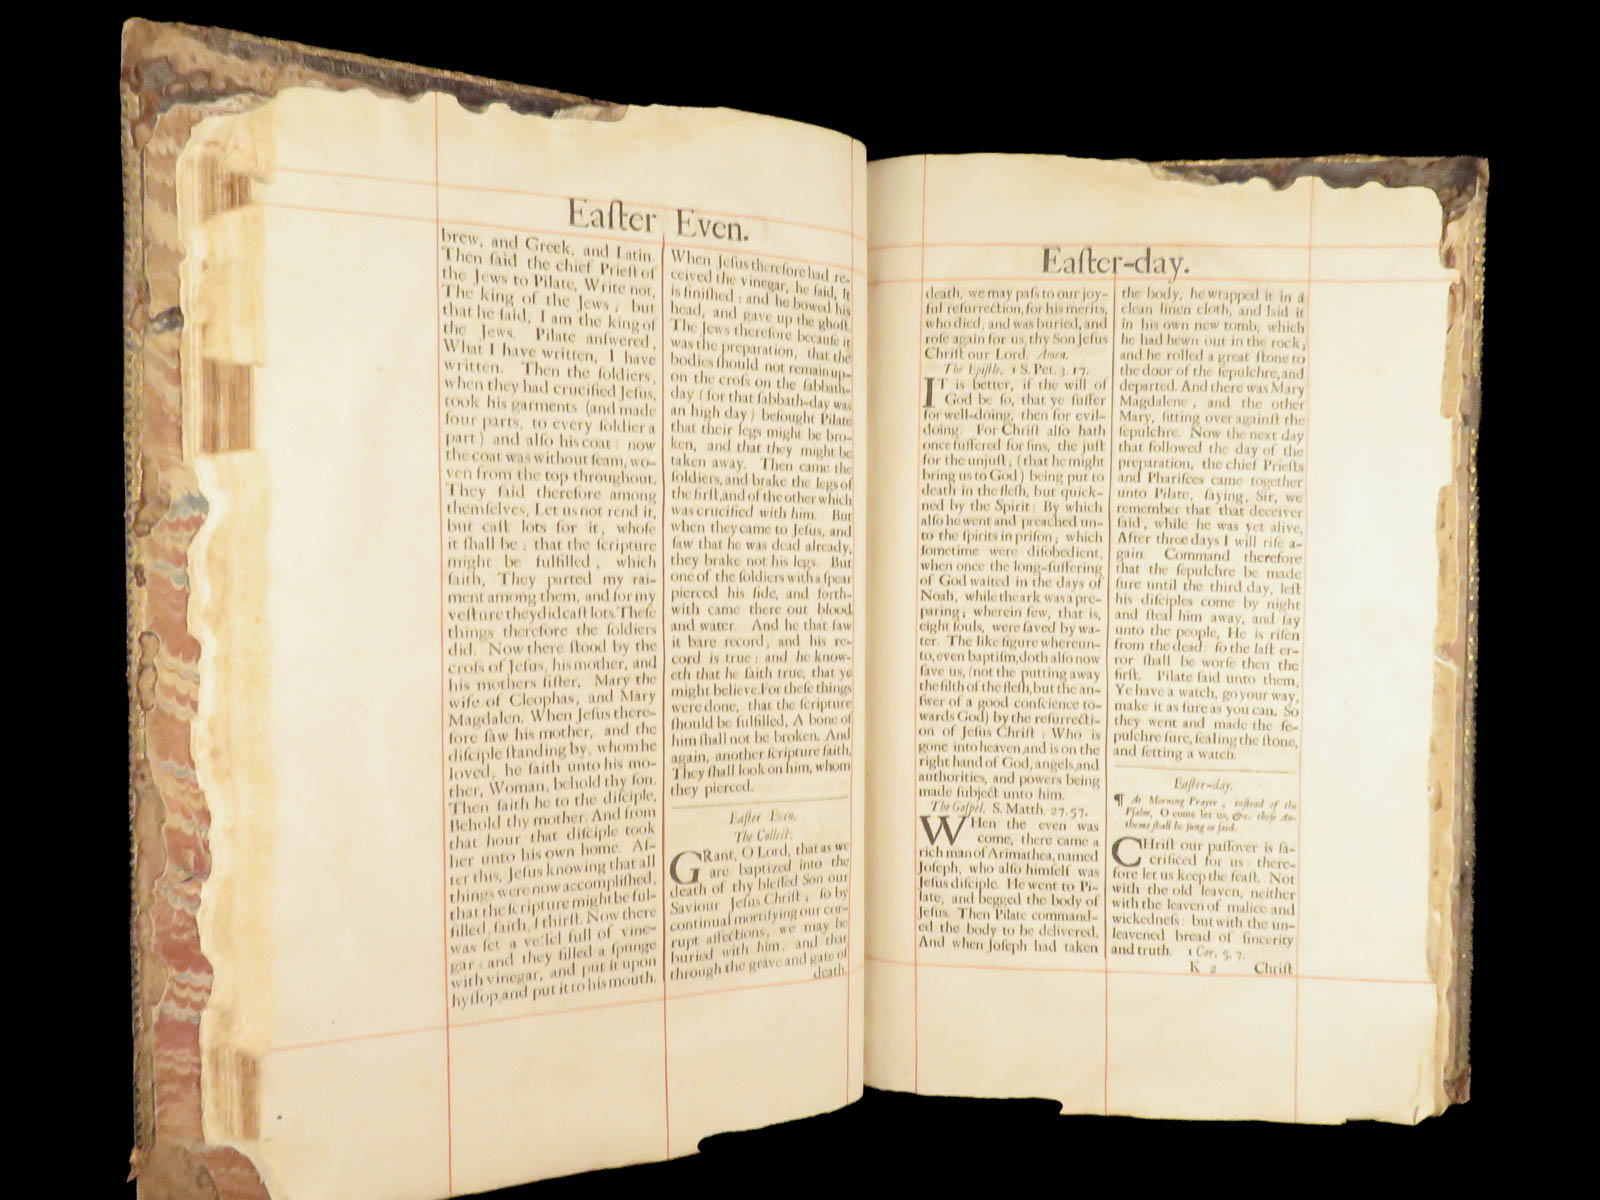 Eaſter Even.
brew, and Greek, and Latin.
Then ſaid the chief Prieſt of
the Jews to Pilate, Write not,
The king of the Jews; but
that he ſaid, I am the king of
the Jews. Pilate anſwered,
What I have written, I have
written. Then the ſoldiers,
when they had crucified Jeſus,
took his garments (and made
four parts, to every ſoldier a
part) and alſo his coat: now
the coat was without ſeam, wo-
ven from the top throughout.
They ſaid therefore among
themſelves, Let us not rend it,
but caſt lots for it, whoſe
it ſhall be: that the ſcripture
might be fulfilled, which
ſaith, They parted my rai-
ment among them, and for my
veſture they did caſt lots. Theſe
things therefore the ſoldiers
did. Now there ſtood by the
croſs of Jeſus, his mother, and
his mothers ſiſter, Mary the
wife of Cleophas, and Mary
Magdalen. When Jeſus there-
fore ſaw his mother, and the
diſciple ſtanding by, whom he
loved, he ſaith unto his mo-
ther, Woman, behold thy ſon.
Then ſaith he to the diſciple,
Behold thy mother. And from
that hour that diſciple took
her unto his own home. Af-
ter this, Jeſus knowing that all
things were now accompliſhed,
that the ſcripture might be ful-
filled, ſaith, I thirſt. Now there
was ſet a veſſel full of vine-
gar: and they filled a ſpunge
with vinegar, and put it upon
hyſſop, and put it to his mouth.
When Jeſus therefore had re-
ceived the vinegar, he ſaid, It
is finiſhed: and he bowed his
head, and gave up the ghoſt.
The Jews therefore becauſe it
was the preparation, that the
bodies ſhould not remain up-
on the croſs on the ſabbath-
day (for that ſabbath-day was
an high day) beſought Pilate
that their legs might be bro-
ken, and that they might be
taken away. Then came the
ſoldiers, and brake the legs of
the firſt, and of the other which
was crucified with him. But
when they came to Jeſus, and
ſaw that he was dead already,
they brake not his legs. But
one of the ſoldiers with a ſpear
pierced his ſide, and forth-
with came there out blood
and water. And he that ſaw
it bare record, and his re-
cord is true: and he know-
eth that he ſaith true, that ye
might believe. For theſe things
were done, that the ſcripture
ſhould be fulfilled, A bone of
him ſhall not be broken. And
again, another ſcripture ſaith,
They ſhall look on him, whom
they pierced.
Eaſter Even.
The Collect.
GRant, O Lord, that as we
are baptized into the
death of thy bleſſed Son our
Saviour Jeſus Chriſt; ſo by
continual mortifying our cor-
rupt affections, we may be
buried with him; and that
through the grave and gate of
death,
Eaſter-day.
death, we may paſs to our joy-
ful reſurrection, for his merits,
who died, and was buried, and
roſe again for us, thy Son Jeſus
Chriſt our Lord. Amen.
The Epiſtle. 1 S. Pet. 3. 17.
IT is better, if the will of
God be ſo, that ye ſuffer
for well-doing, then for evil-
doing. For Chriſt alſo hath
once ſuffered for ſins, the juſt
for the unjuſt; (that he might
bring us to God) being put to
death in the fleſh, but quick-
ned by the Spirit: By which
alſo he went and preached un-
to the ſpirits in priſon; which
ſometime were diſobedient,
when once the long-ſuffering
of God waited in the days of
Noah, while the ark was a pre-
paring; wherein few, that is,
eight ſouls, were ſaved by wa-
ter. The like figure whereun-
to, even baptiſm, doth alſo now
ſave us, (not the putting away
the filth of the fleſh, but the an-
ſwer of a good conſcience to-
wards God) by the reſurrecti-
on of Jeſus Chriſt: Who is
gone into heaven, and is on the
right hand of God, angels, and
authorities, and powers being
made ſubject unto him.
The Goſpel. S. Matth. 27. 57.
WHen the even was
come, there came a
rich man of Arimathea, named
Joſeph, who alſo himſelf was
Jeſus diſciple. He went to Pi-
late, and begged the body of
Jeſus. Then Pilate command-
ed the body to be delivered.
And when Joſeph had taken
the body, he wrapped it in a
clean linen cloth, and laid it
in his own new tomb, which
he had hewn out in the rock;
and he rolled a great ſtone to
the door of the ſepulchre, and
departed. And there was Mary
Magdalene, and the other
Mary, ſitting over againſt the
ſepulchre. Now the next day
that followed the day of the
preparation, the chief Prieſts
and Phariſees came together
unto Pilate, ſaying, Sir, we
remember that that deceiver
ſaid, while he was yet alive,
After three days I will riſe a-
gain. Command therefore
that the ſepulchre be made
ſure until the third day, leſt
his diſciples come by night
and ſteal him away, and ſay
unto the people, He is riſen
from the dead: ſo the laſt er-
ror ſhall be worſe then the
firſt. Pilate ſaid unto them,
Ye have a watch, go your way,
make it as ſure as you can. So
they went and made the ſe-
pulchre ſure, ſealing the ſtone,
and ſetting a watch.
Eaſter-day.
¶ At Morning Prayer, inſtead of the
Pſalm, O come let us, &c. theſe An-
thems ſhall be ſung or ſaid.
CHriſt our paſſover is ſa-
crificed for us: there-
fore let us keep the feaſt. Not
with the old leaven, neither
with the leaven of malice and
wickedneſs: but with the un-
leavened bread of ſincerity
and truth. 1 Cor. 5. 7.
K 2 Chriſt